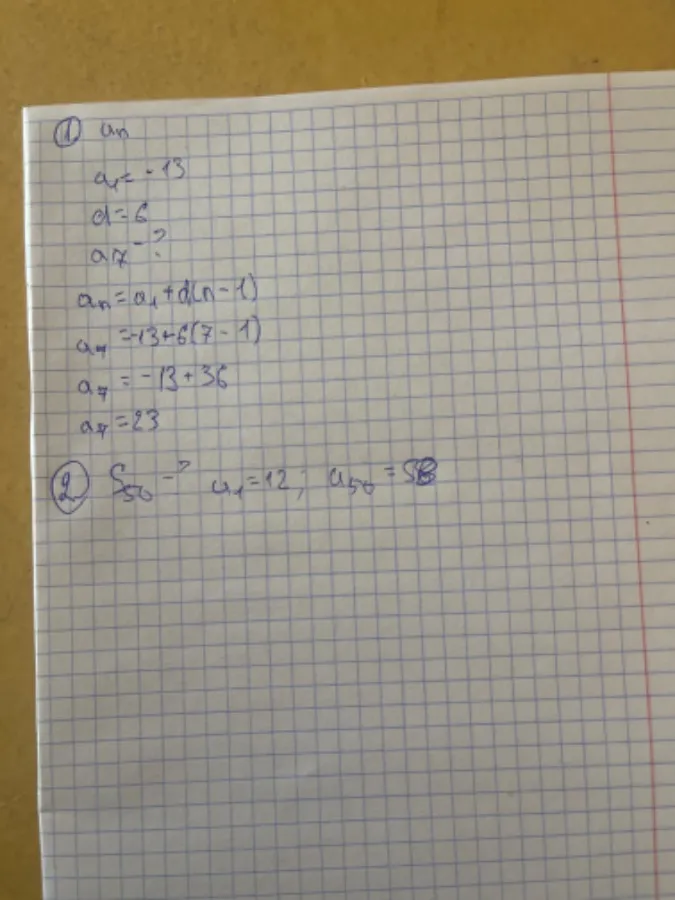 ① an
a₁=-13
d=6
a7-?
an=a₁+d(n-1)
a7=-13+6(7-1)
a7=-13+36
a7=23
② S50-? a₁=12; a50=